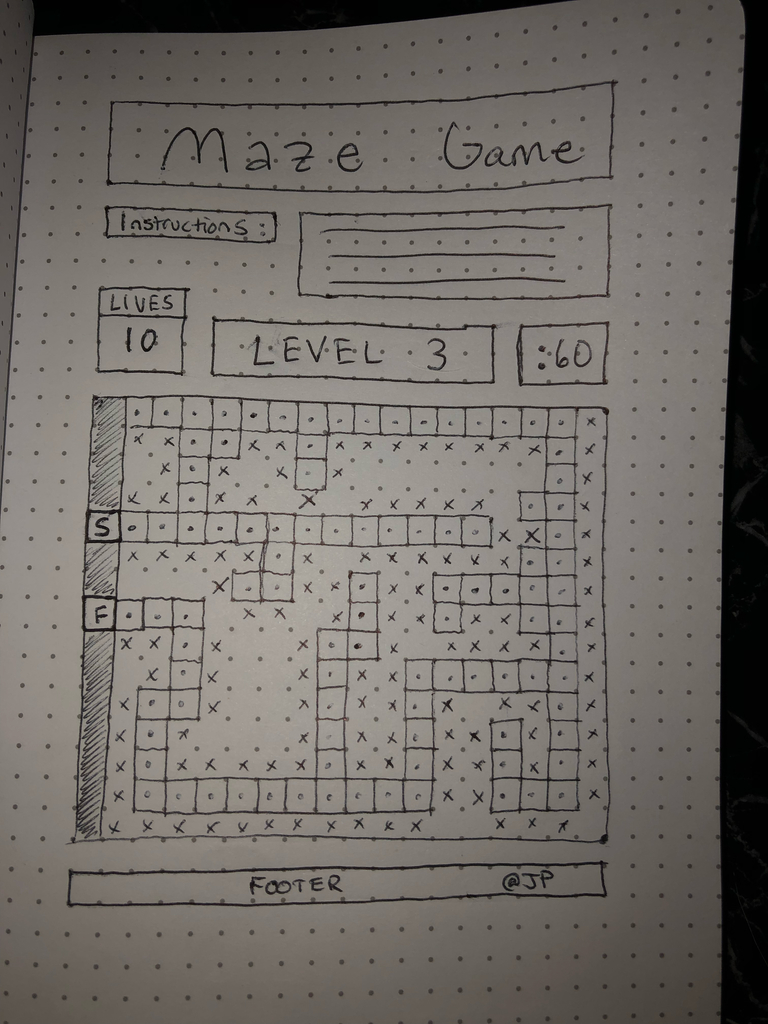 Maze Game
Instructions:
LIVES
10
LEVEL 3
:60
S
F
FOOTER @JP